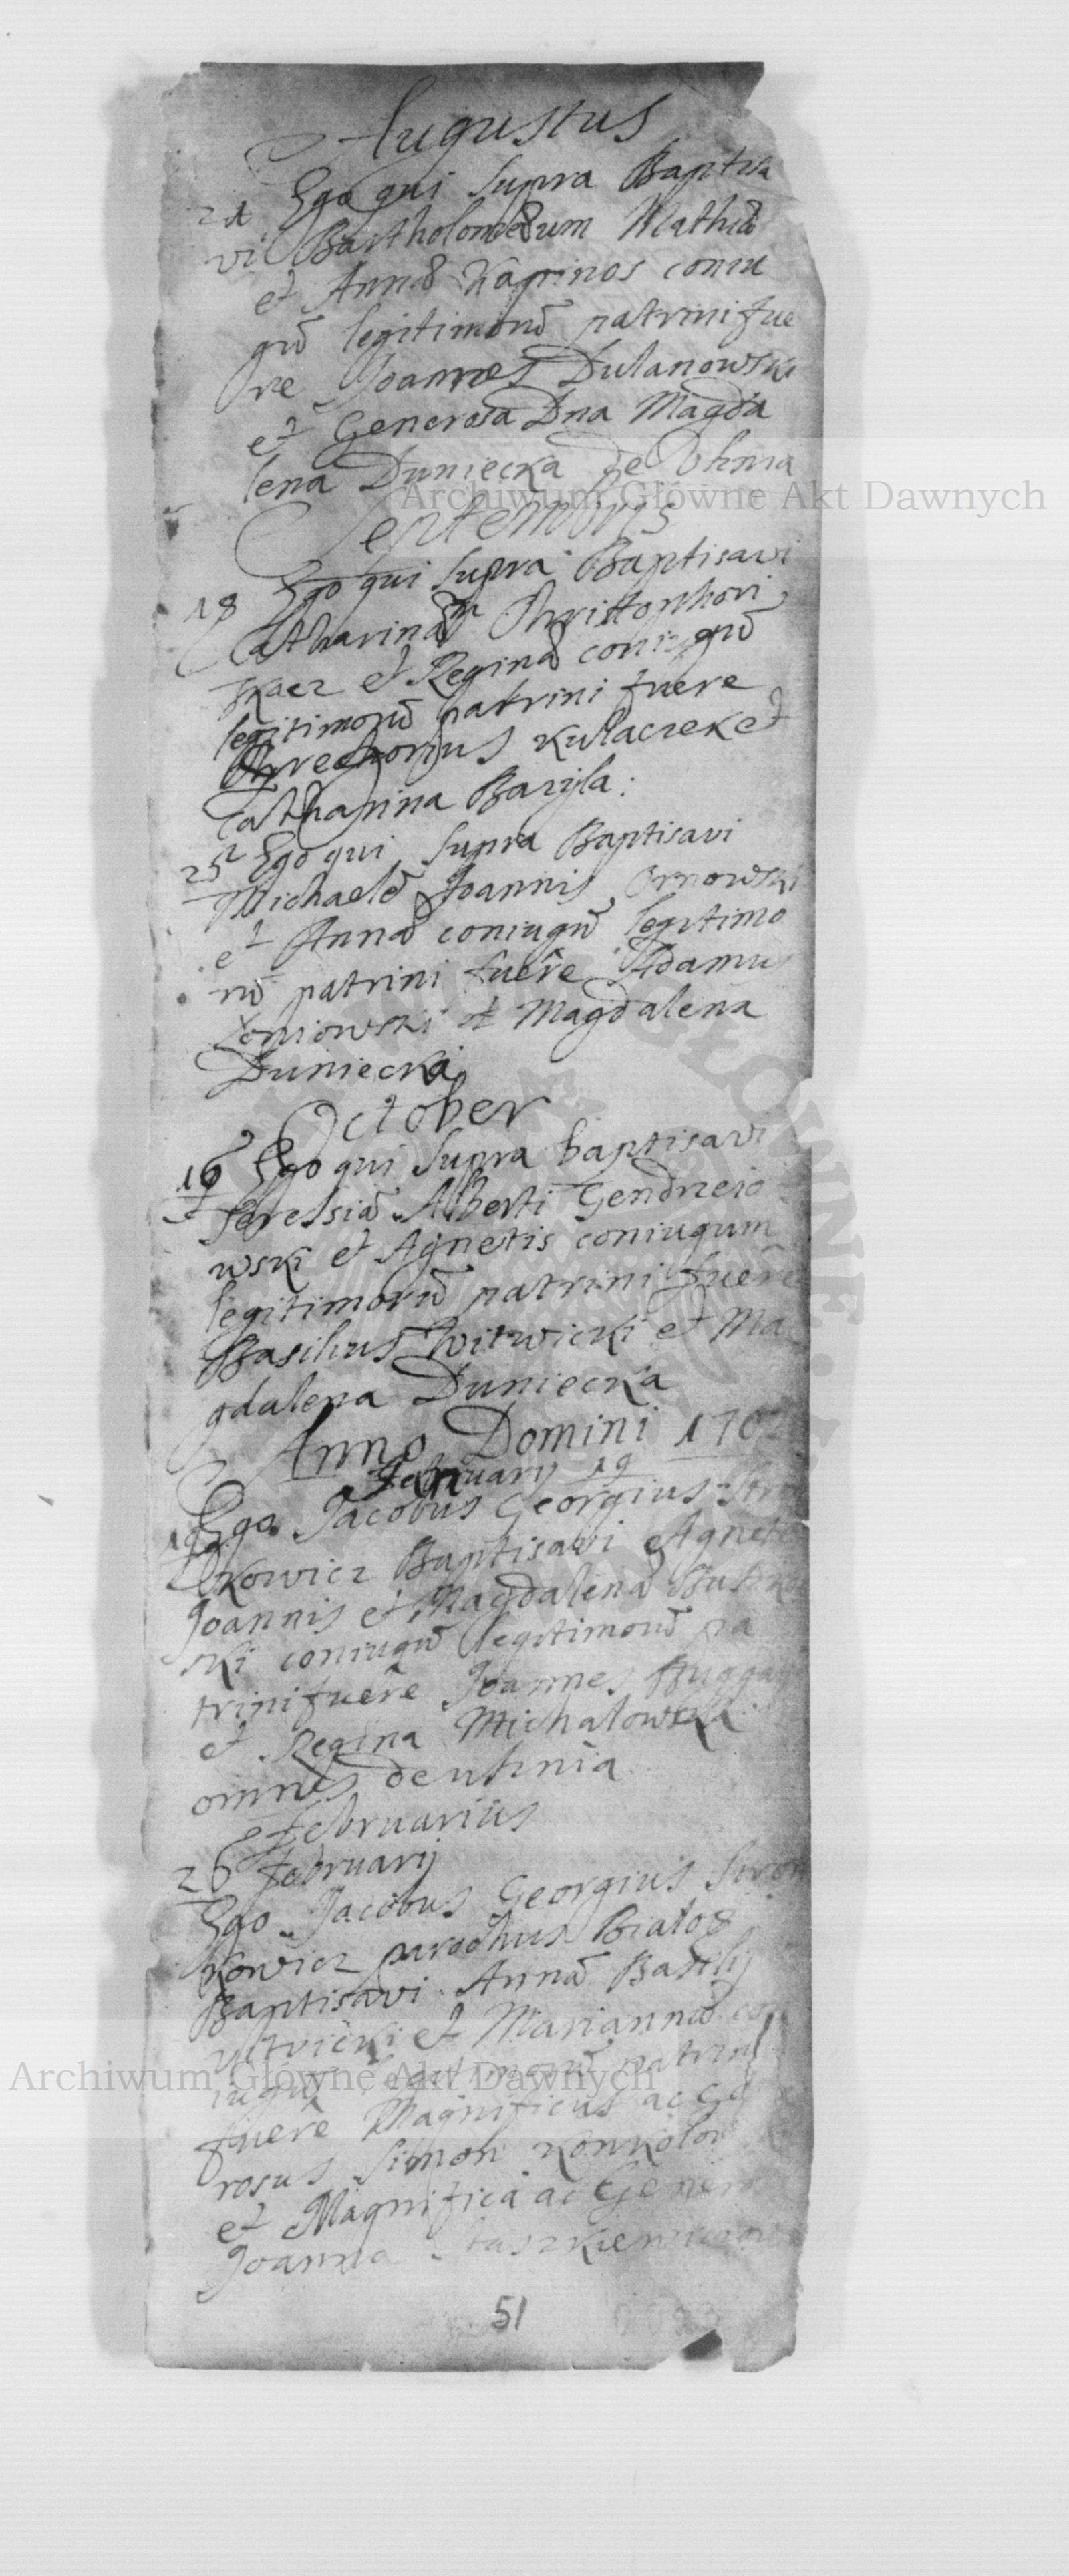 Augustus
21 Ego qui supra Baptisa
vi Bartholomeum Mathiae
et Annae Kapinos coniu
gũ legitimorũ patrini fue
re Joannes Dulanowski
et Generosa Dna Magda
lena Duniecka de Uhnia
Septembris
18 Ego qui supra Baptisavi
Catharinam Christophori
Tkacz et Regina coniugũ
legitimorũ patrini fuere
Kulaczek et
Catharina Baryla:
25 Ego qui supra Baptisavi
Michaelẽ Joannis Ornowski
et Anna coniugũ legitimo
rũ patrini fuere Adamus
et Magdalena
Duniecka
October
16 Ego qui supra baptisavi
Teressiã Alberti Gendrzeio
wski et Agnetis coniugum
legitimorũ patrini fuêre
Basilius Witwicki et Ma
gdalena Duniecka
Anno Domini 170
February 19
19 Ego Jacobus Georgius
kowicz Baptisavi Agnet
Joannis et Magdalena
ski coniugũ legitimorũ pa
trini fuêre Joannes
et Regina Michalowska
omnes de uhnia
Februarius
26 february
Ego Jacobus Georgius
kowicz parochus
Baptisavi Annã Basilij
et Marianna co
iugũ legitimorũ patrini
fuêre Magnificus ac Ge
rosus Simon
et Magnifica ac Genero
Joanna
51
Archiwum Główne Akt Dawnych
Archiwum Główne Akt Dawnych